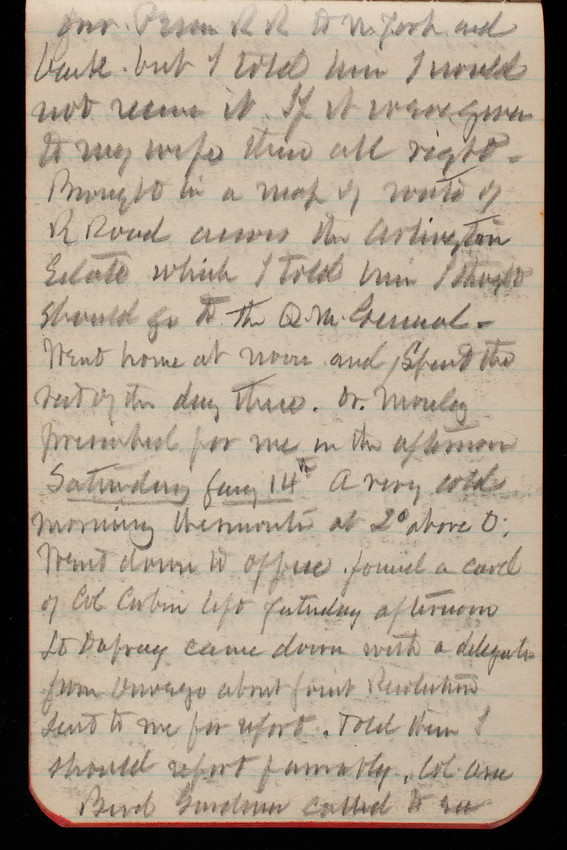 over Penn R R to N. York and
back. but I told him I would
not receive it. If it were given
to my wife then all right -
Brought in a map of route of
R Road across the Arlington
Estate which I told him I thought
should go to the Q. M. General -
Went home at noon and spent the
rest of the day there. Dr. Morley
prescribed for me in the afternoon
Saturday Jany 14th A very cold
morning thermometer at 2° above 0.
Went down to office. found a card
of Col Corbin left yesterday afternoon
Lt came down with a delegate
from Oswego about Joint Resolution
sent to me for report. Told them I
should report favorably. Col Asa
Bird Gardiner called to see